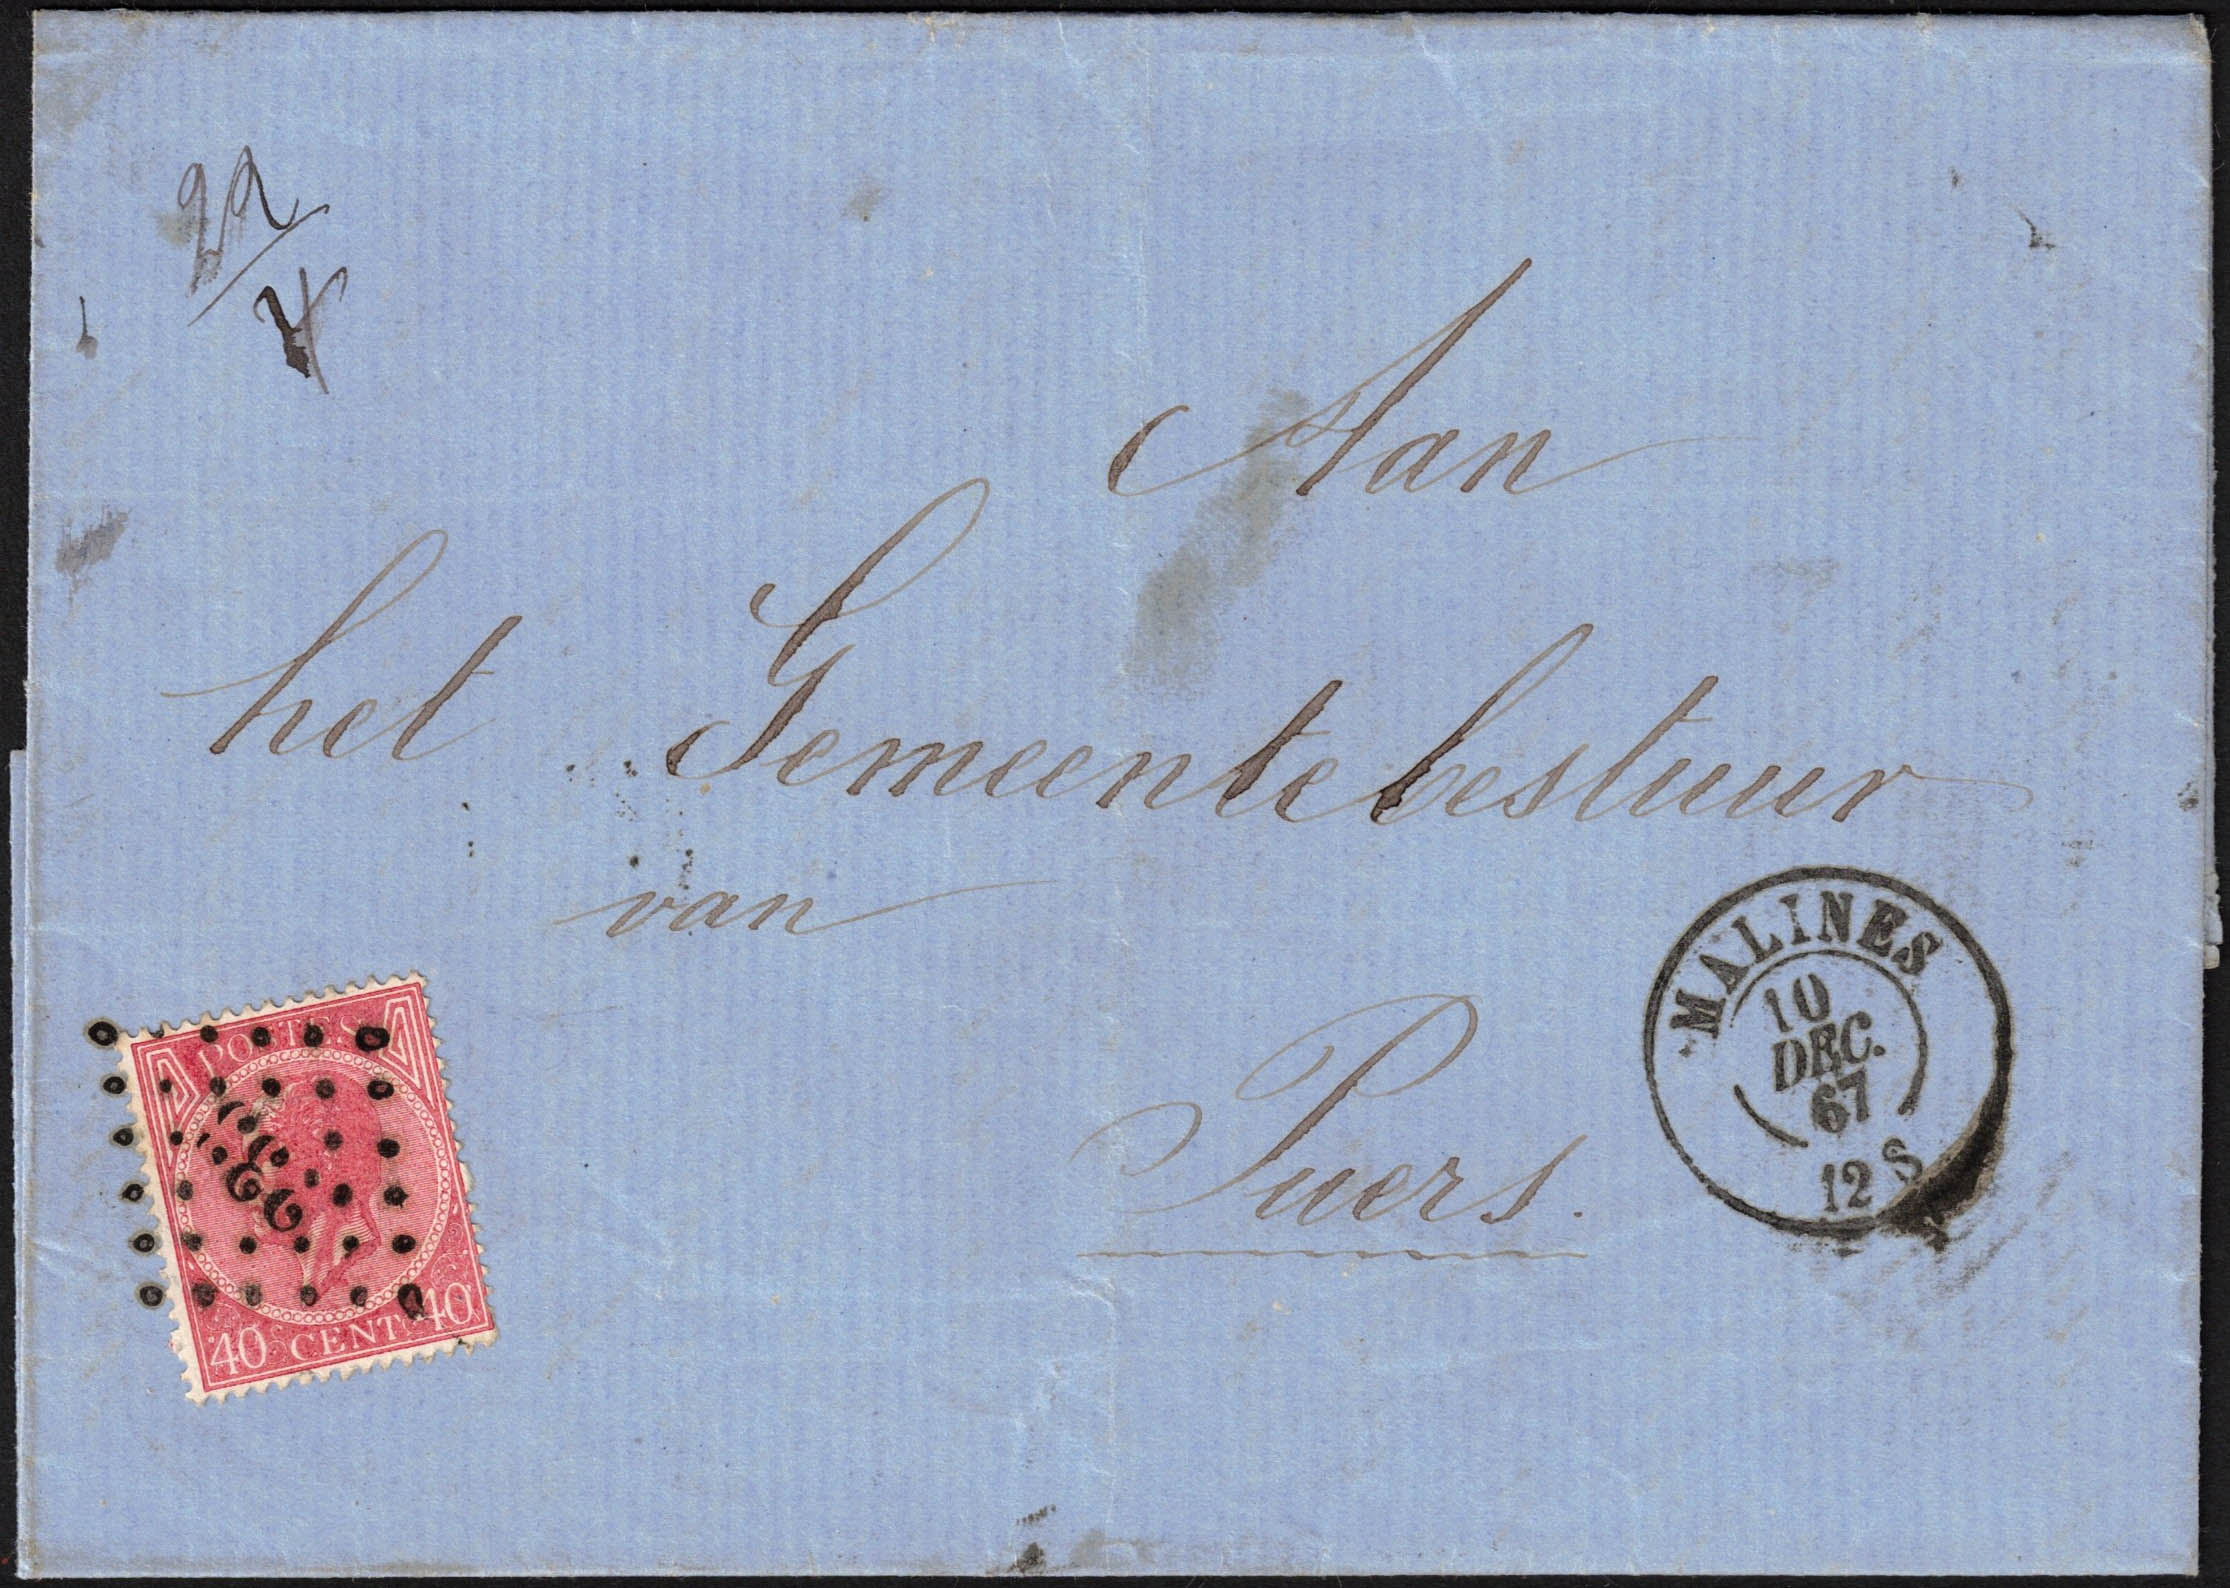 22/4
Aan
het Gemeentebestuur
van
Puers.
MALINES
10
DEC.
67
12 S
POSTES
40 CENT. 40